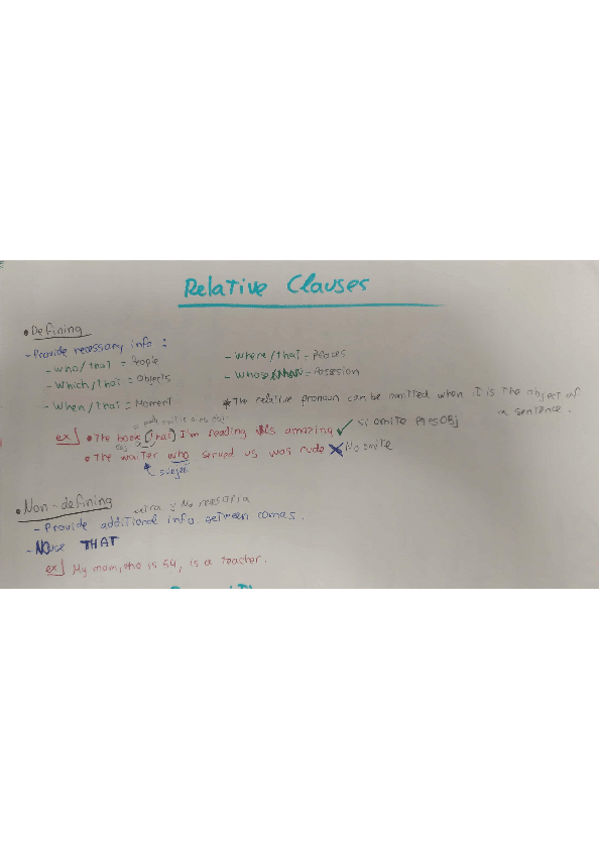 Relative Clauses
• Defining
- Provide necessary info :
- who/that = People
- Which/that = Objects
- When/that = Moment
- where/that = Places
- Whose = Possesion
* The relative pronoun can be omitted when it is the object of a sentence.
ex] • The book (that) I'm reading is amazing ✓ si omite
obj
• The waiter who served us was rude X No omite
subject
• Non-defining extra y No necesaria
- Provide additional info between comas.
- NO use THAT
ex] My mom, who is 54, is a teacher.